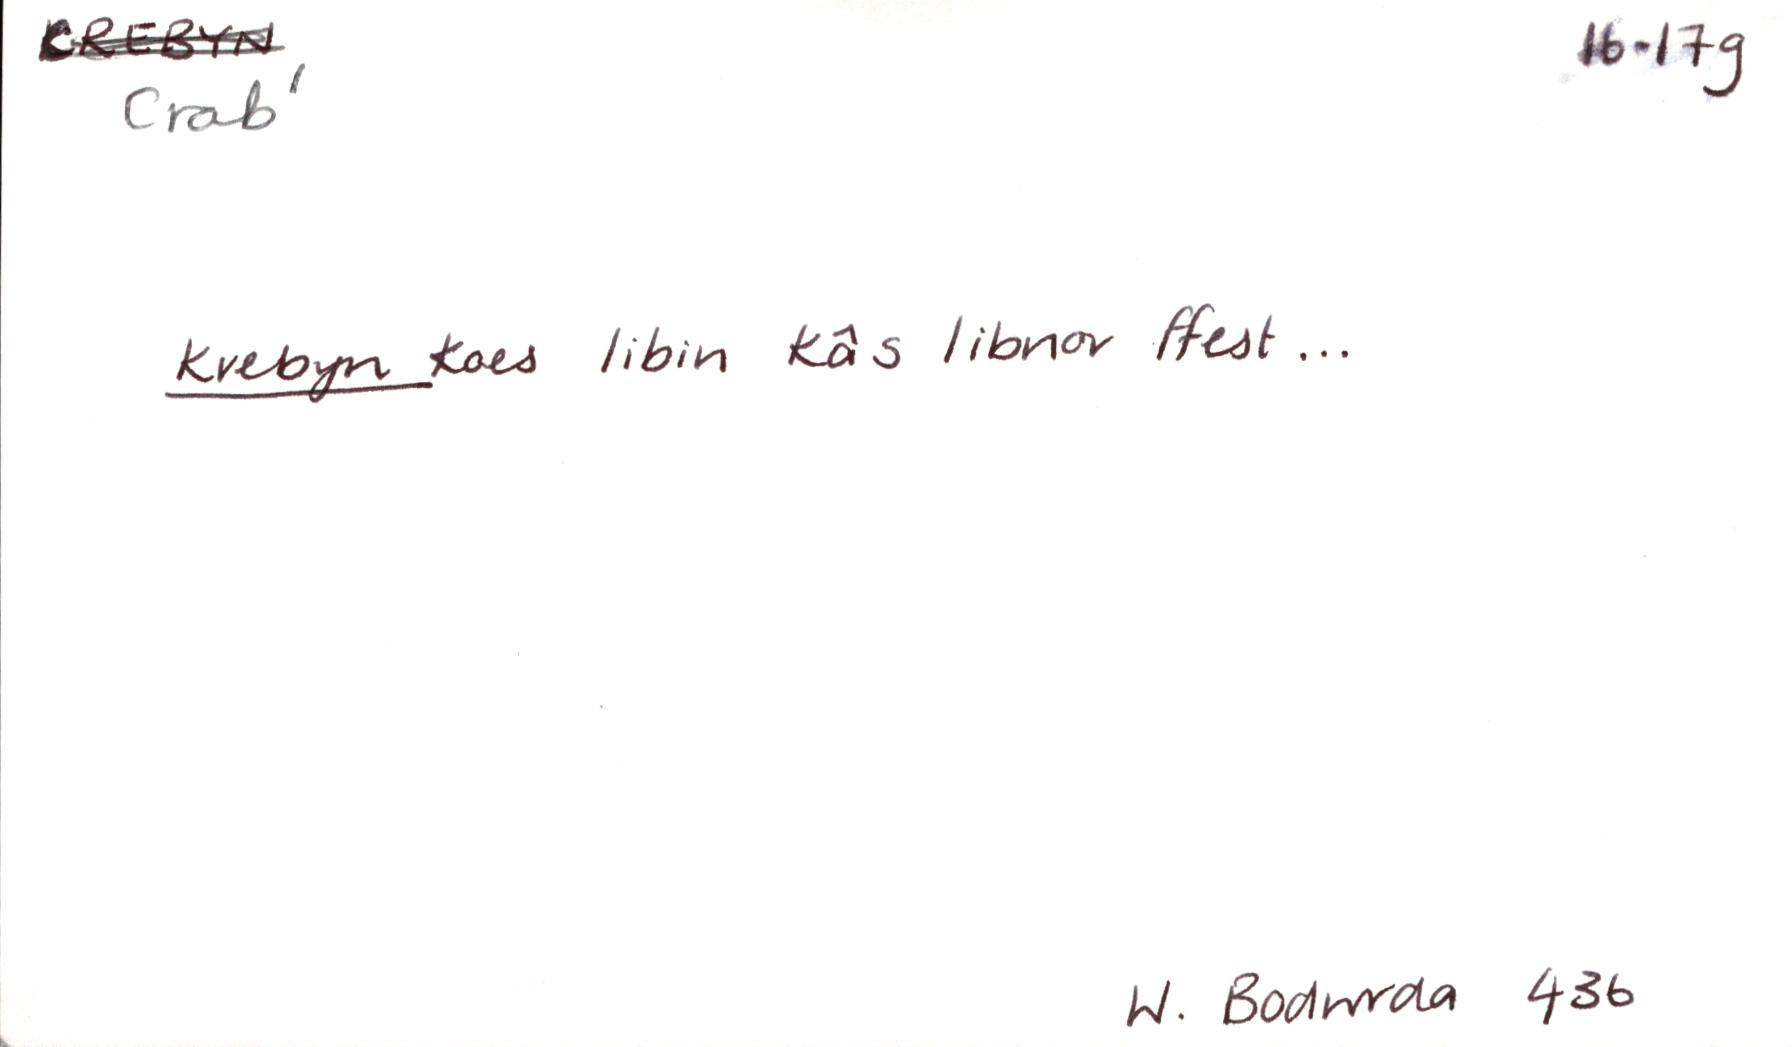 CREBYN 16-17g
Crab'
krebyn koes libin kâs libnor ffest...
W. Bodwrda 436